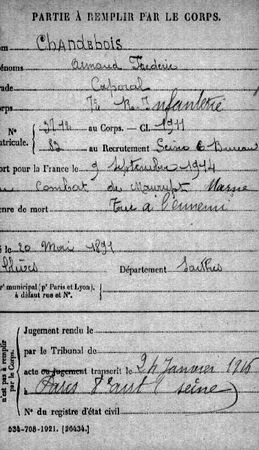 PARTIE À REMPLIR PAR LE CORPS.
om CHANDEBOIS
énoms Armand Frédéric
ade Caporal
orps R. Infanterie
N° au Corps. — Cl. 1911
atricule. au Recrutement Seine 6e Bureau
ort pour la France le 9 Septembre 1914
Combat de Marne
enre de mort Tué à l'ennemi
é le 20 Mars 1891
Département Sarthe
r municipal (pr Paris et Lyon), à défaut rue et N°.
n'est pas à remplir par le Corps.
Jugement rendu le
par le Tribunal de
acte ou jugement transcrit le 24 Janvier 1916
à Paris (Seine)
N° du registre d'état civil
534-708-1921. [26434.]